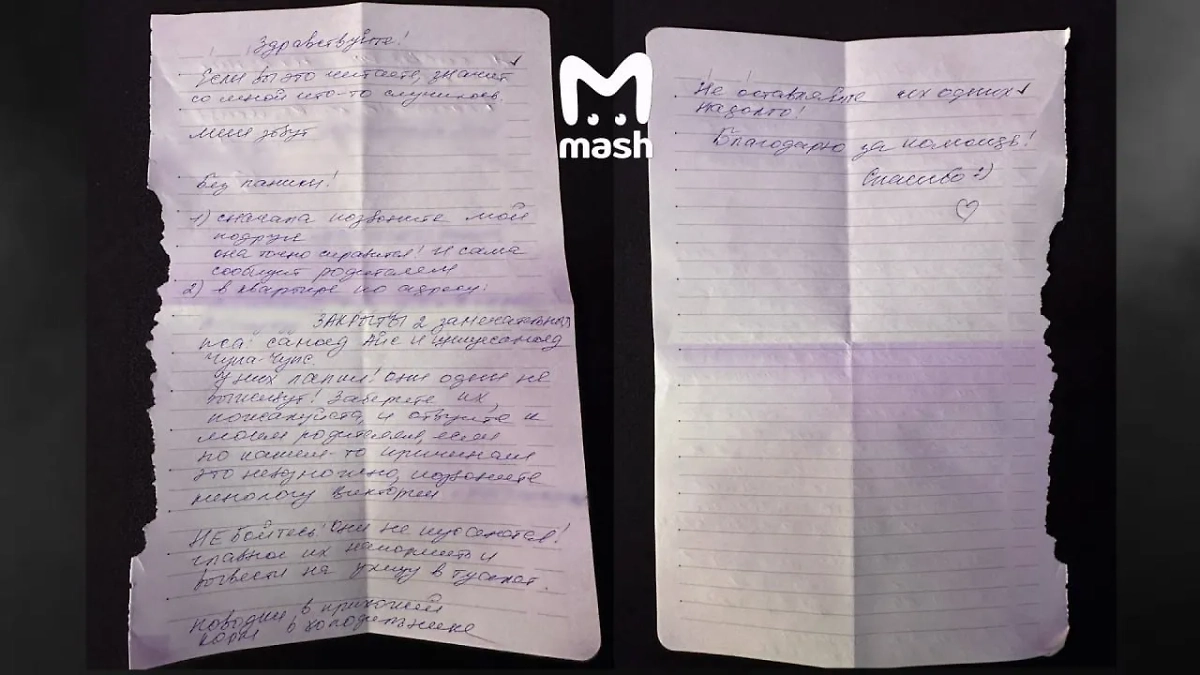 Здравствуйте!
Если вы это читаете, значит
со мной что-то случилось.
меня зовут
Без паники!
1) сначала позвоните моей
подруге
она точно справится! И сама
сообщит родителям
2) в квартире по адресу:
ЗАКРЫТЫ 2 замечательных
пса: самоед Айс и
Чупа-Чупс
У них лапки! Они одни не
выживут! Заберите их,
пожалуйста, и
моим родителям, если
по каким-то причинам
это невозможно, позвоните
кинологу Виктории
НЕ бойтесь! Они не кусаются!
главное их накормить и
вывести на улицу в туалет.
поводки в прихожей
корм в холодильнике
mash
Не оставляйте их одних
надолго!
Благодарю за помощь!
Спасибо :)